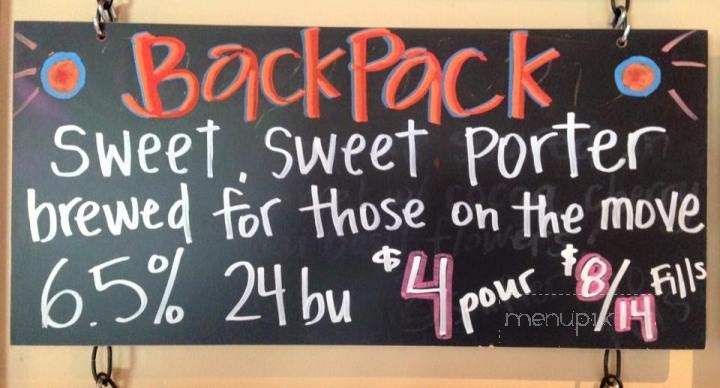 BackPack
Sweet, Sweet Porter
brewed for those on the move
6.5% 24 bu $4 pour $8/14 Fills
menupix